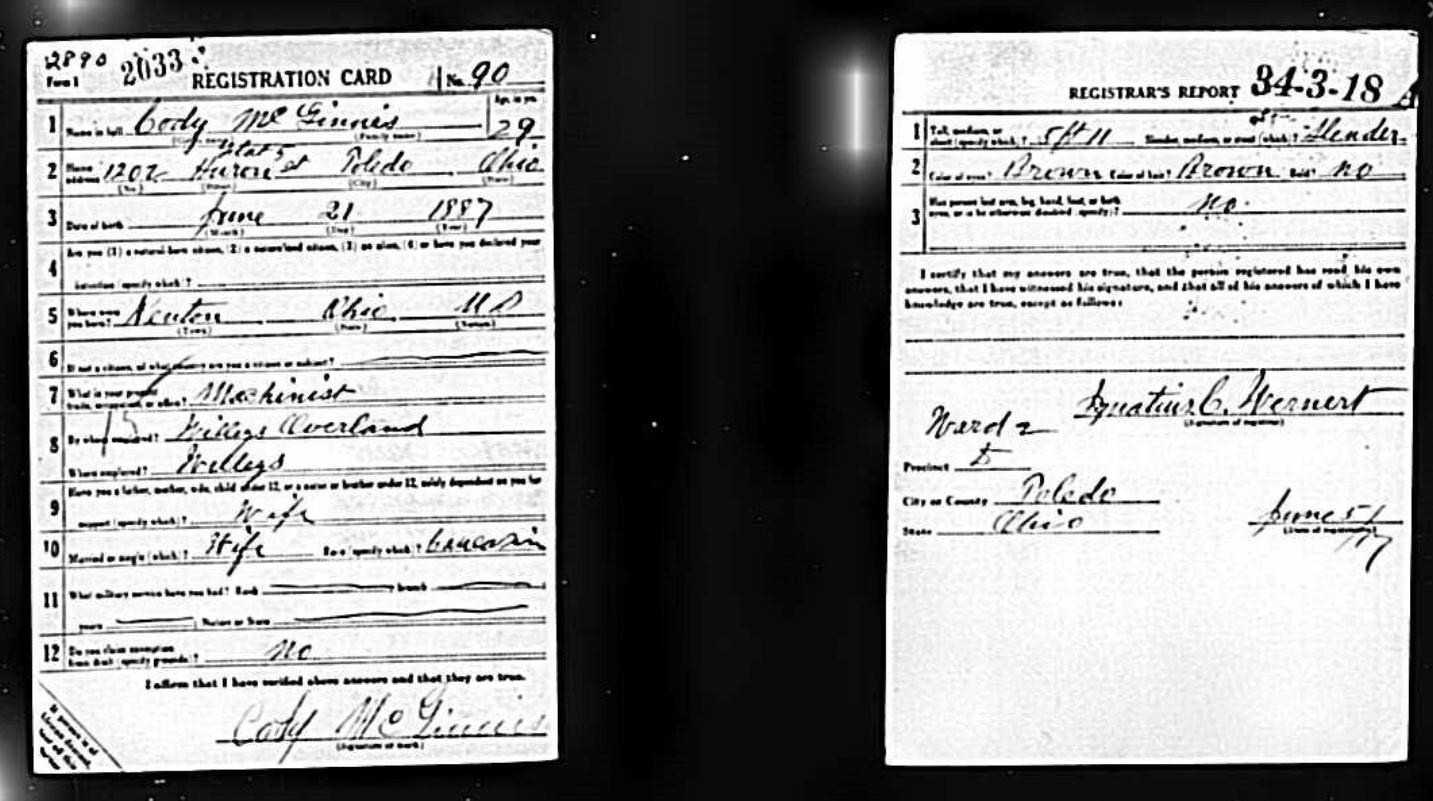 2890
Form 1 2033 REGISTRATION CARD No. 90
1 Name in full Cody McGinnis (Family name) Age, in yrs. 29
2 Home address 1202 Huron St Toledo Ohio
(No.) (Street) (City) (State)
3 Date of birth June 21 1887
(Month) (Day) (Year)
4 Are you (1) a natural born citizen, (2) a naturalized citizen, (3) an alien, (4) or have you declared your
intention (specify which)?
5 Where were you born? Ohio U S
(Town) (State) (Nation)
6 If not a citizen, of what country are you a citizen or subject?
7 What is your present trade, occupation, or office? Machinist
8 By whom employed? Willys Overland
Where employed? Willys
9 Have you a father, mother, wife, child under 12, or a sister or brother under 12, solely dependent on you for
support (specify which)? Wife
10 Married or single (which)? Wife Race (specify which)? Caucasian
11 What military service have you had? Rank branch
years Nation or State
12 Do you claim exemption from draft (specify grounds)? No
I affirm that I have verified above answers and that they are true.
Cody McGinnis
(Signature or mark)
REGISTRAR'S REPORT 34-3-18 A
1 Tall, medium, or short (specify which)? 5 ft 11 Slender, medium, or stout (which)? Slender
2 Color of eyes? Brown Color of hair? Brown Bald? No
3 Has person lost arm, leg, hand, foot, or both eyes, or is he otherwise disabled (specify)? No
I certify that my answers are true, that the person registered has read his own
answers, that I have witnessed his signature, and that all of his answers of which I have
knowledge are true, except as follows:
Ignatius C. Wernert
(Signature of registrar)
Ward 2
Precinct
City or County Toledo
State Ohio
June 5/17
(Date of registration)